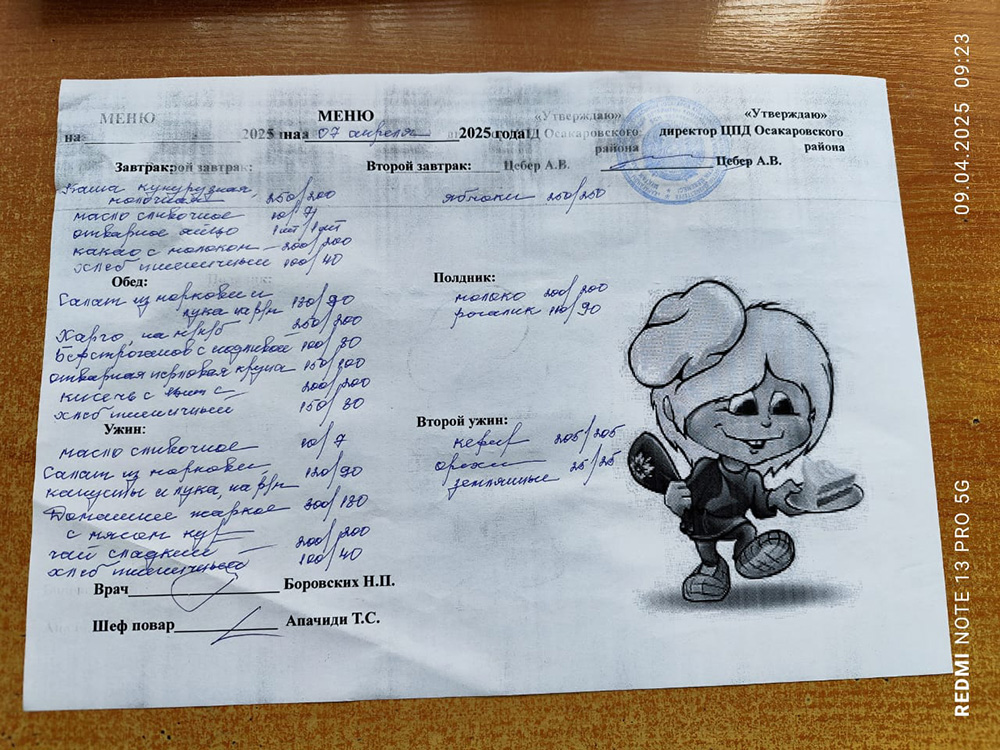 МЕНЮ
МЕНЮ
«Утверждаю»
«Утверждаю»
на
2025
на 07 апреля 2025 года
ЦПД Осакаровского
директор ЦПД Осакаровского
района
района
Завтрак:
завтрак:
Второй завтрак:
Цебер А.В.
Цебер А.В.
Каша кукурузная
молочная 250/200
масло сливочное 10/7
отварное яйцо 1шт/1шт
какао с молоком 200/200
хлеб пшеничный 100/40
яблоки 250/250
Обед:
Салат из моркови и
лука на р/м 120/90
Харчо, на 250/200
Бефстроганов с подливой 100/80
отварная перловая крупа 150/100
кисель с 200/200
хлеб пшеничный 150/80
Полдник:
молоко 200/200
рогалик 110/90
Ужин:
масло сливочное 10/7
Салат из моркови,
капусты и лука, на р/м 120/90
Домашнее жаркое 300/180
с мясом кур
чай сладкий 200/200
хлеб пшеничный 100/40
Второй ужин:
кефир 205/205
орехи 25/25
земляные
Врач Боровских Н.П.
Шеф повар Апачиди Т.С.
09.04.2025 09:23
REDMI NOTE 13 PRO 5G